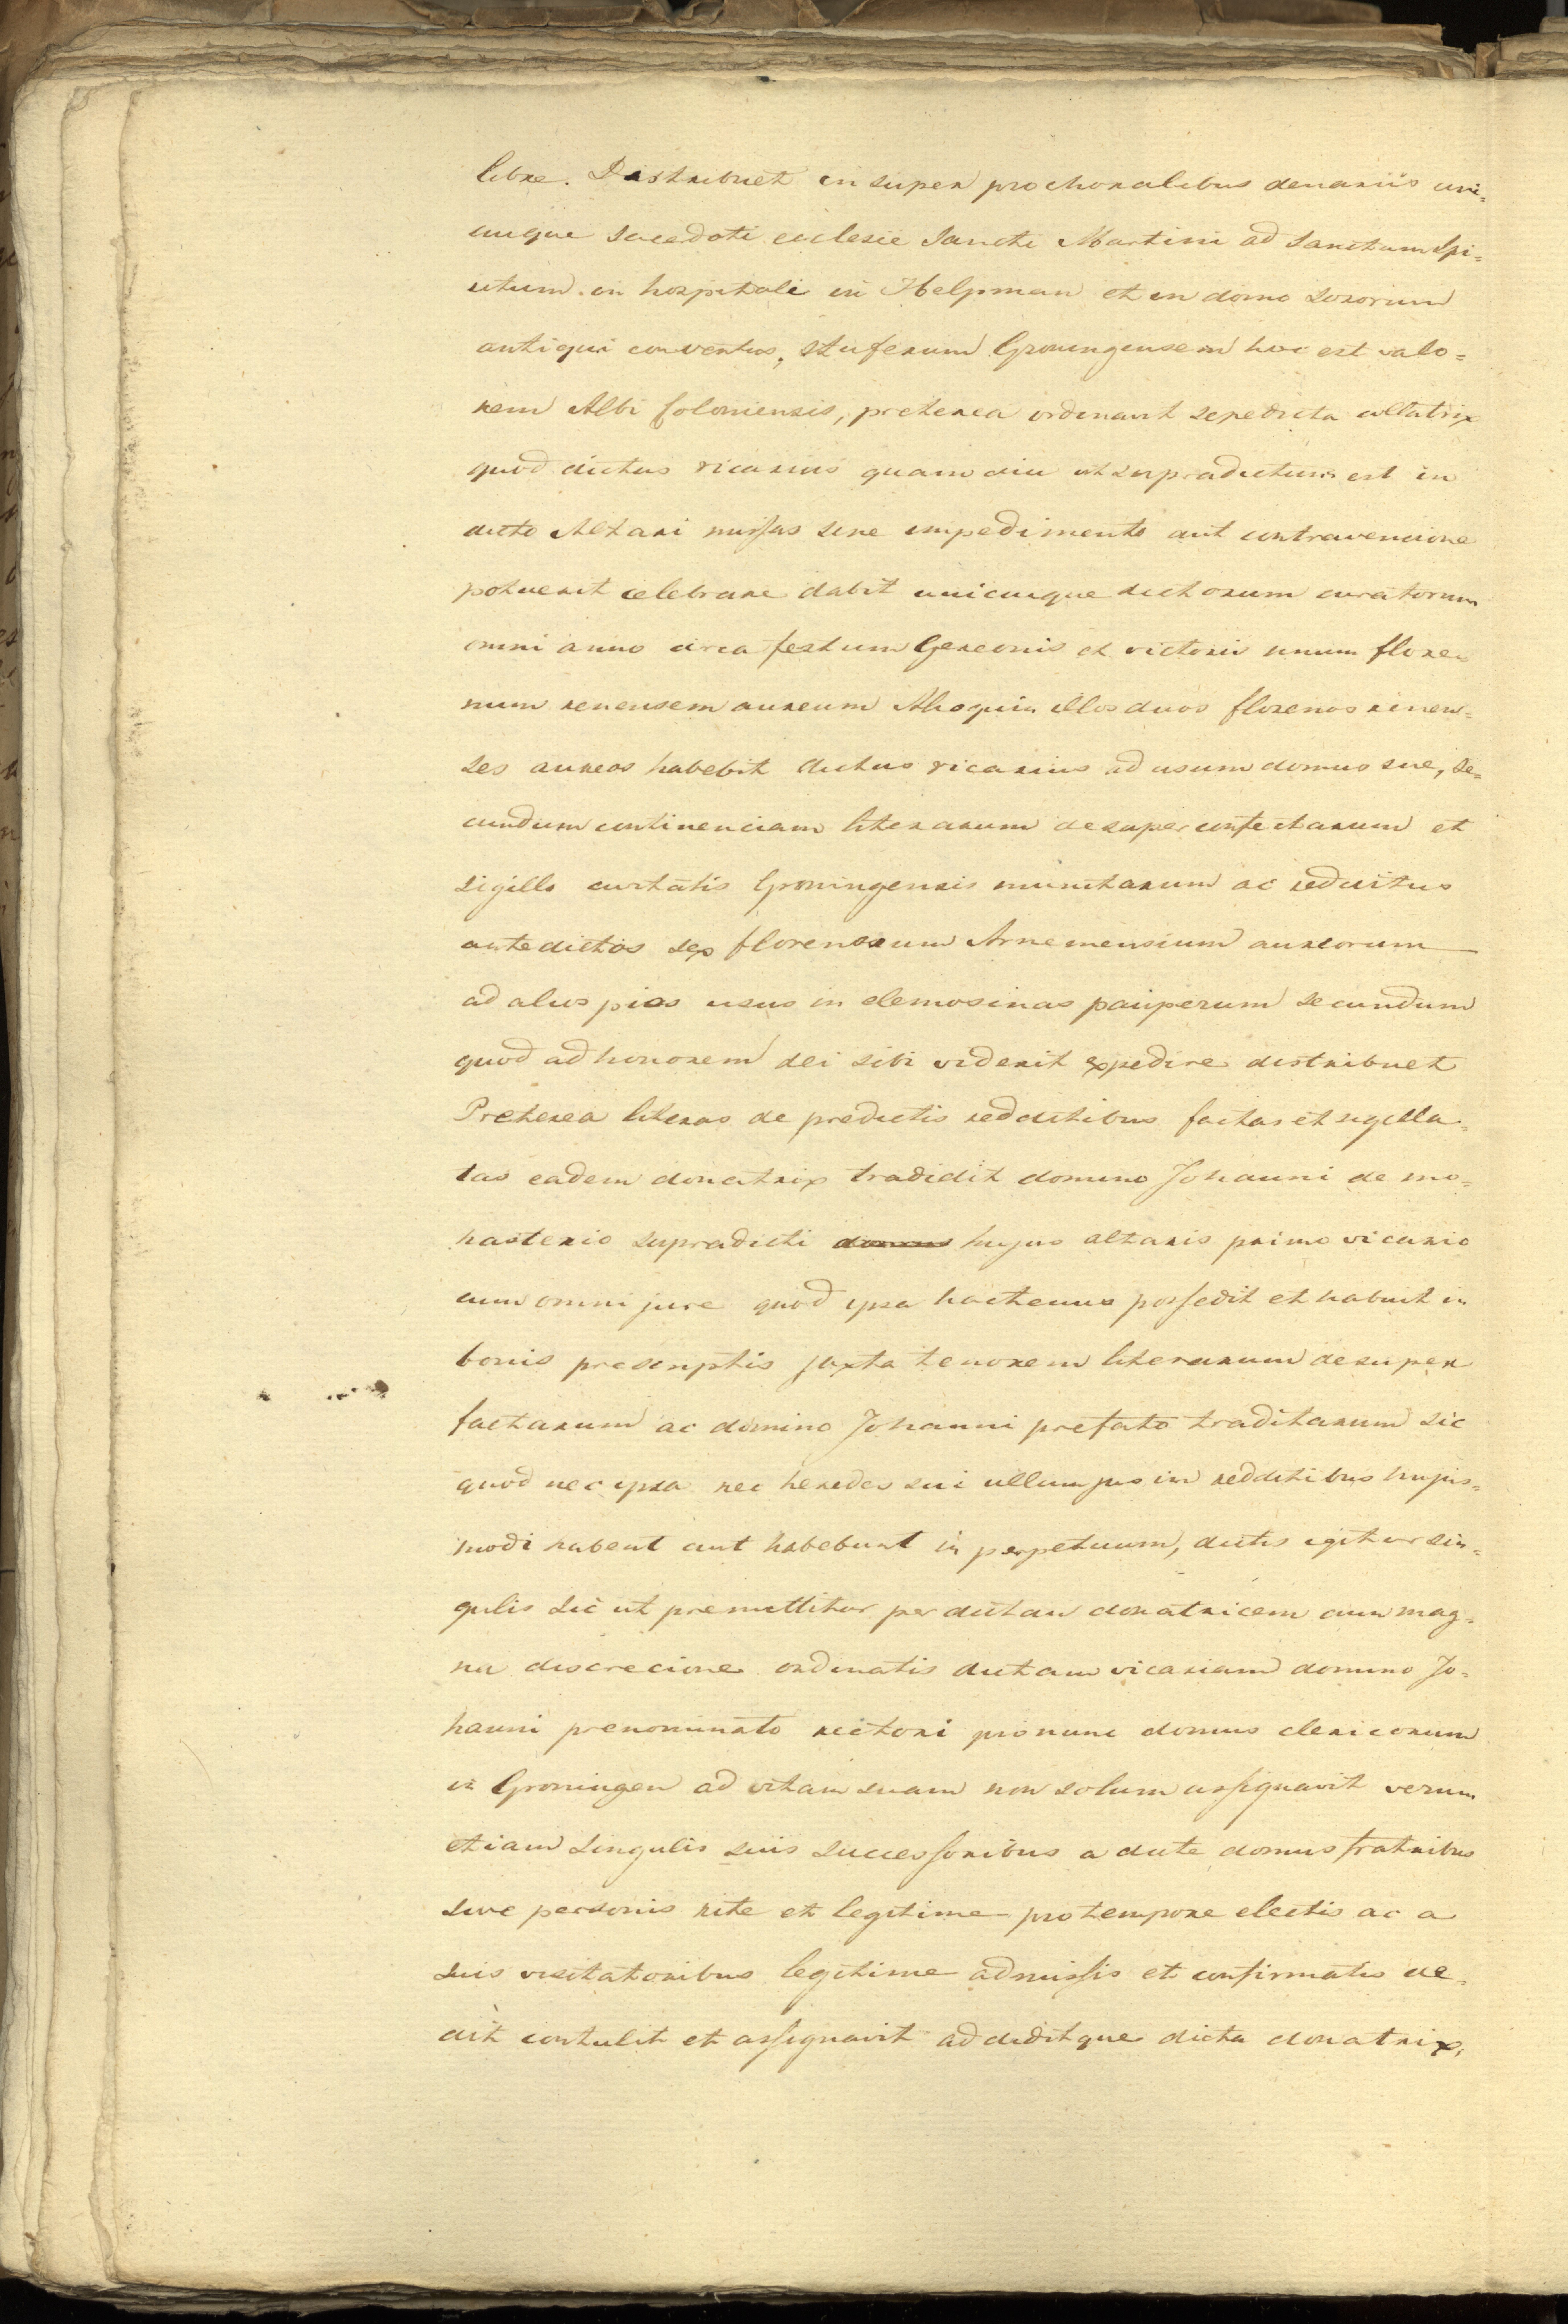 libre. Distribuet in super pro choralibus denariis uni=
cuique sacerdoti ecclesie Sancti Martini ad Sanctum Spi=
ritum. in hospitali in Helpman et in domo sororum
antiqui conventus, stuferum Groningensem hoc est valo=
rem Albi Coloniensis, preterea ordinavit sepedicta collatrix
quod dictus vicarius quam diu ut supradictum est in
dicto Altari missas sine impedimento aut contravencione
potuerit celebrare dabit unicuique dictorum curatorum
omni anno circa festum Gereonis et victoris unum flore=
num renensem aureum Alioquin illos duos florenos renen=
ses aureos habebit dictus vicarius ad usum domus sue, se=
cundum continenciam literarum desuper confectarum et
sigillo civitatis Groningensis munitarum ac redditus
antedictos sex florenorum Arnemensium aureorum
ad alios pios usus in elemosinas pauperum secundum
quod ad honorem dei sibi viderit expedire distribuet
Preterea literas de predictis redditibus factas et sigilla=
tas eadem donatrix tradidit domino Johanni de mo=
nasterio supradicti domus hujus altaris primo vicario
cum omni jure quod ipsa hactenus possedit et habuit in
bonis prescriptis juxta tenorem literarum desuper
factarum ac domino Johanni prefato traditarum sic
quod nec ipsa nec heredes sui ullum jus in redditibus hujus=
modi habent aut habebunt in perpetuum, dictis igitur sin=
gulis sic ut premittitur per dictam donatricem cum mag=
na discrecione ordinatis dictam vicariam domino Jo=
hanni prenominato rectori pro nunc domus clericorum
in Groningen ad vitam suam non solum assignavit verum
etiam singulis suis successoribus a dicte domus fratribus
sive personis rite et legitime pro tempore electis ac a
suis visitatoribus legitime admissis et confirmatis de=
dit contulit et assignavit addiditque dicta donatrix,